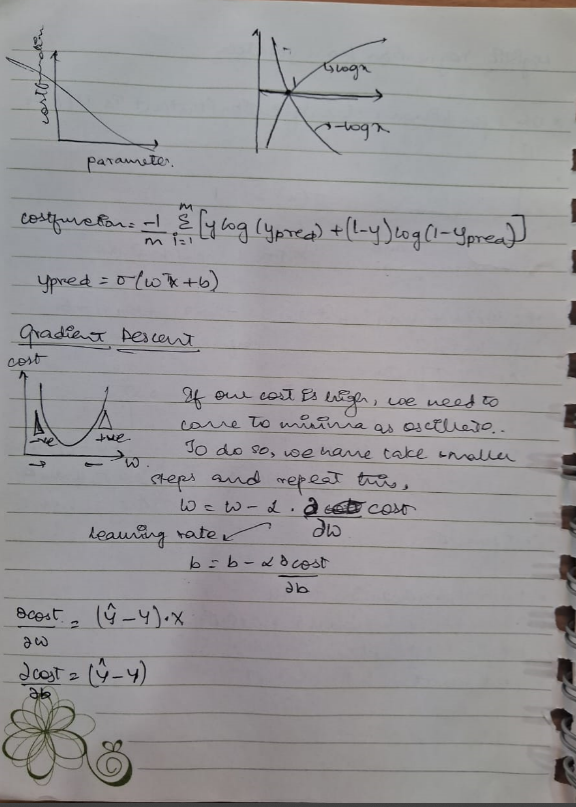 costfunction
parameter.
logx
-logx
costfunction = -1/m Σ i=1 m [y log (ypred) + (1-y) log (1-ypred)]
ypred = σ(wᵀx + b)
Gradient Descent
cost
-ve
+ve
w.
If our cost is high, we need to
come to minima as
To do so, we have take smaller
steps and repeat this,
w = w - α . ∂cost/∂w
learning rate
b = b - α ∂cost/∂b
∂cost/∂w = (ŷ - y) . x
∂cost/∂b = (ŷ - y)